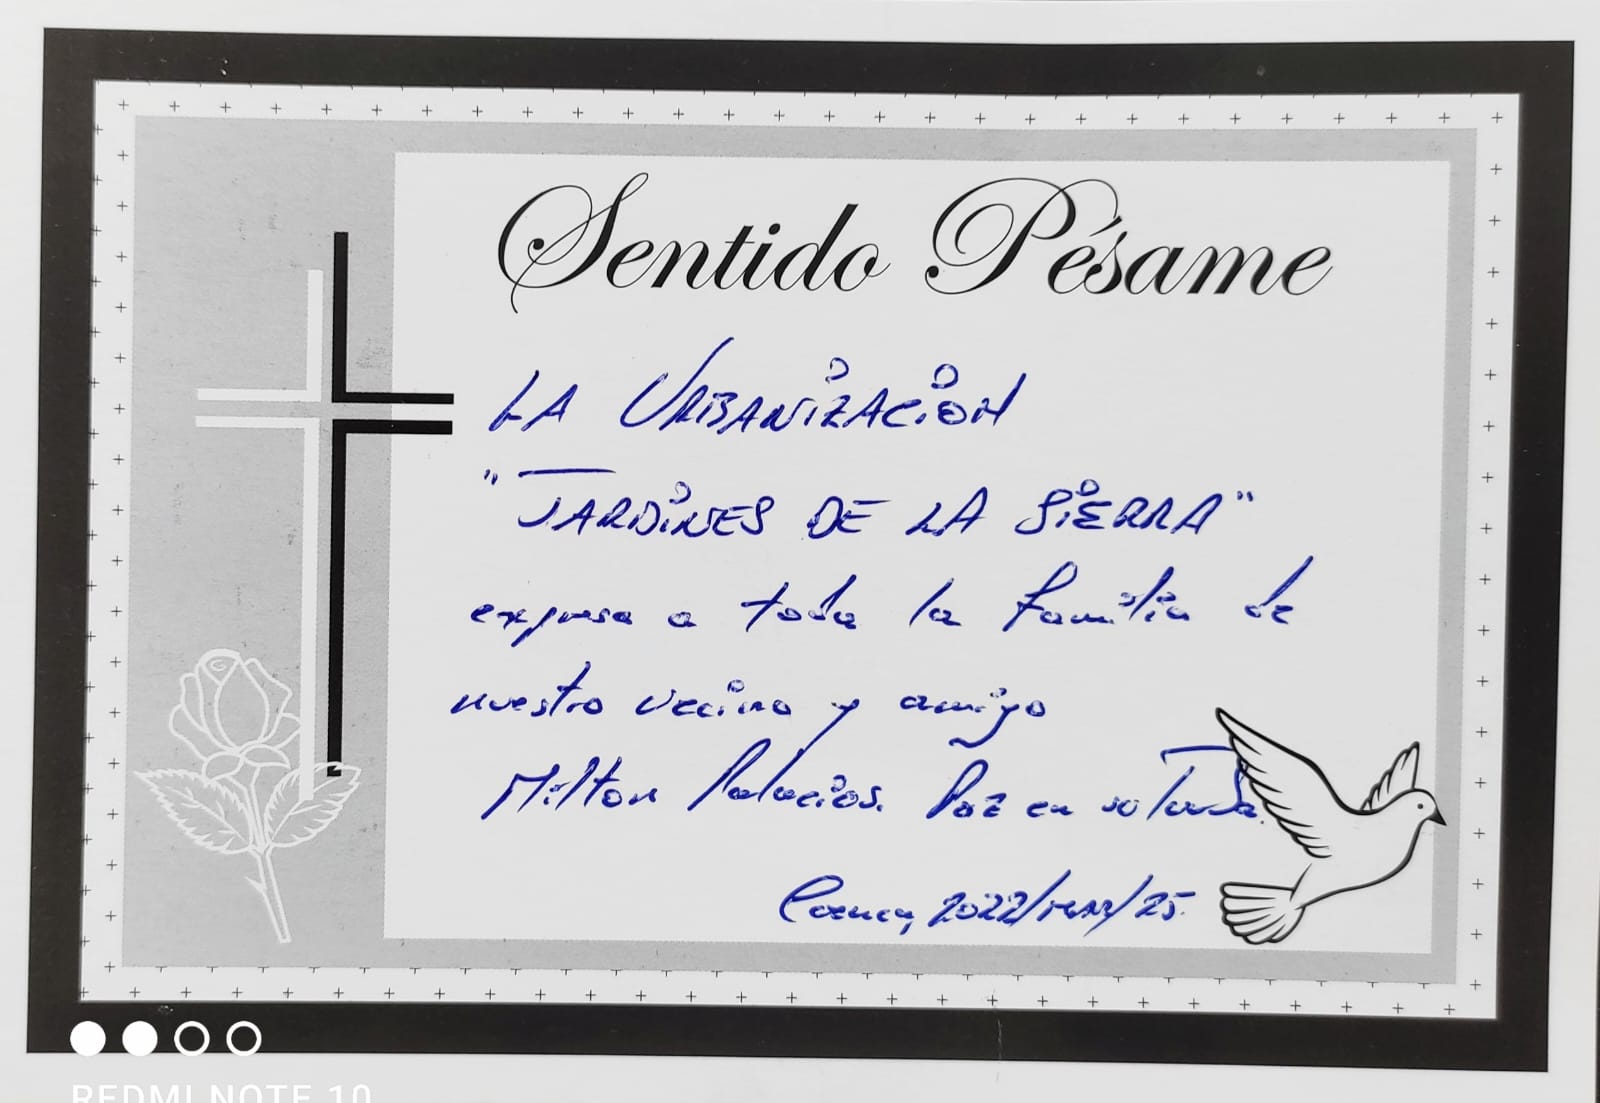 Sentido Pésame
LA URBANIZACIÓN
"JARDINES DE LA SIERRA"
expresa a toda la familia de
nuestro vecino y amigo
Milton Palacios. Paz en su Tumba.
Cuenca, 2022/MAR/25.
REDMI NOTE 10